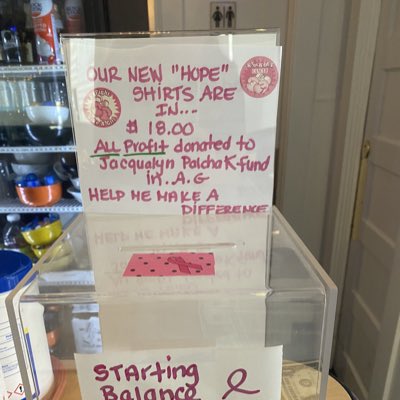 OUR NEW "HOPE"
SHIRTS ARE
IN...
$ 18.00
ALL Profit donated to
Jacqualyn Palchak fund
in A.G
HELP ME MAKE A
DIFFERENCE
STARTING
Balance